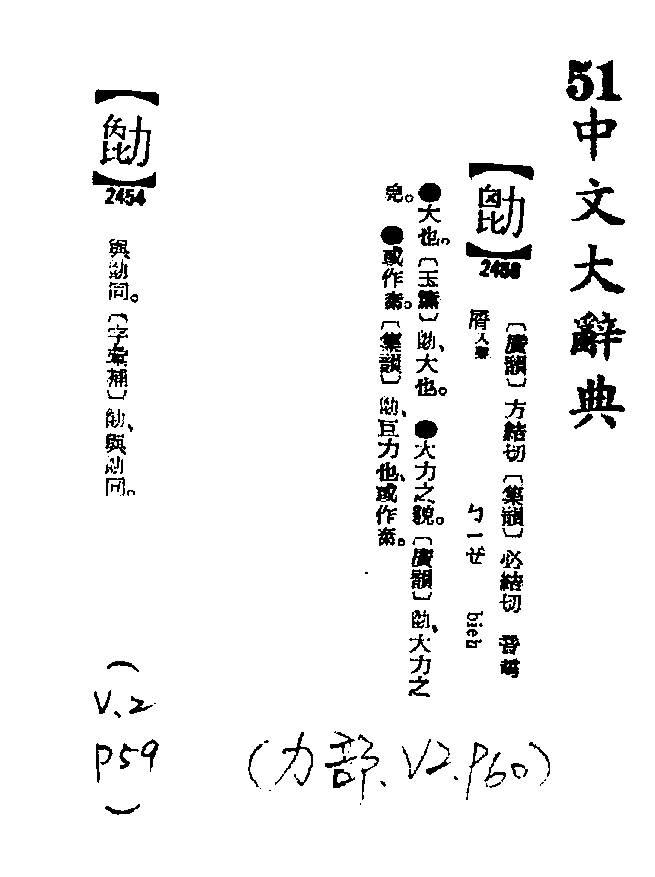 51
中文大辭典
2458
〔廣韻〕方結切〔集韻〕必結切 音
屑入聲 ㄅㄧㄝ bieh
●大也。〔玉篇〕、大也。●大力之貌。〔廣韻〕、大力之
皃。●或作奰。〔集韻〕、巨力也、或作奰。
2454
與同。〔字彙補〕、與同。
(
V.2
P59
)
(力部、V2.P60)